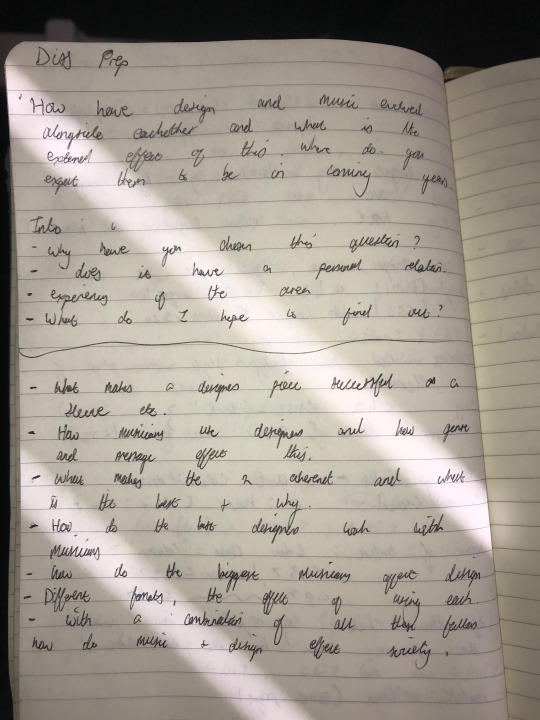 Diss Prep
'How have design and music evolved
alongside eachother and what is the
external effect of this. Where do you
expect them to be in coming years.
Into
- Why have you chosen this question?
- does is have a personal relation.
- experiency of the area
- What do I hope to find out?
- What makes a designes piece successful as a
sleeve etc.
- How musicians use designers and how genre
and message effect this.
- What makes the 2 coherent and what
is the best + why.
- How do the best designers work with
musicians
- how do the biggest musicians affect design
- Different formats, the effect of using each.
- with a combination of all these
how do music + design effect society.